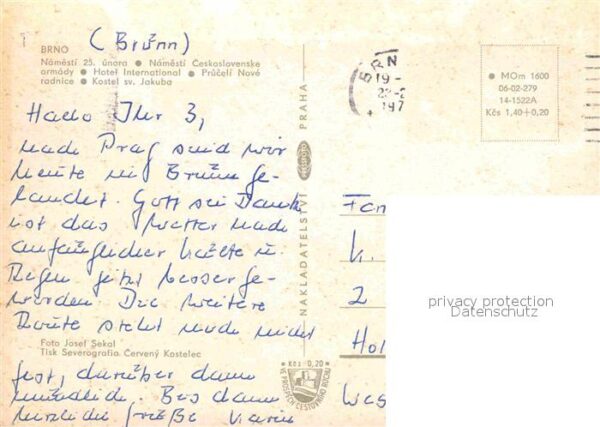 (Brünn)
BRNO
Náměstí 25. února ● Náměstí Československe
armády ● Hotel International ● Průčelí Nové
radnice ● Kostel sv. Jakuba
Hallo Ihr 3,
nach Prag sind wir
heute in Brünn ge-
landet. Gott sei Dank
ist das Wetter nach
anfänglicher Kälte u.
Regen jetzt besser ge-
worden. Die weitere
Route steht noch nicht
Foto Josef Sekal
Tisk Severografia Červený Kostelec
fest, darüber dann
mündlich. Bis dann
herzliche Grüße
NAKLADATELSTVÍ PRAHA
PRESSFOTO
Kčs 0,20
VE PROSPĚCH CESTOVNÍHO RUCHU
BRN
19-
197
● MOm 1600
06-02-279
14-1522A
Kčs 1,40+0,20
Fam
2
privacy protection
Datenschutz